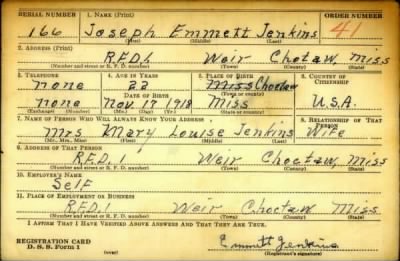 SERIAL NUMBER 1. NAME (Print) ORDER NUMBER
166 Joseph Emmett Jenkins 41
(First) (Middle) (Last)
2. ADDRESS (Print)
R.F.D.1. Weir Chotaw, Miss
(Number and street or R. F. D. number) (Town) (County) (State)
3. TELEPHONE 4. AGE IN YEARS 5. PLACE OF BIRTH 6. COUNTRY OF CITIZENSHIP
none 22 Miss Choctaw
DATE OF BIRTH (Town or county)
none Nov 17 1918 Miss U.S.A.
(Exchange) (Number) (Mo.) (Day) (Yr.) (State or country)
7. NAME OF PERSON WHO WILL ALWAYS KNOW YOUR ADDRESS 8. RELATIONSHIP OF THAT PERSON
Mrs Mary Louise Jenkins Wife
(Mr., Mrs., Miss) (First) (Middle) (Last)
9. ADDRESS OF THAT PERSON
R.F.D. 1 Weir Choctaw, Miss
(Number and street or R. F. D. number) (Town) (County) (State)
10. EMPLOYER'S NAME
Self
11. PLACE OF EMPLOYMENT OR BUSINESS
R.F.D.1 Weir Choctaw Miss
(Number and street or R. F. D. number) (Town) (County) (State)
I AFFIRM THAT I HAVE VERIFIED ABOVE ANSWERS AND THAT THEY ARE TRUE.
REGISTRATION CARD Emmett Jenkins
D. S. S. Form 1 (over) (Registrant's signature)